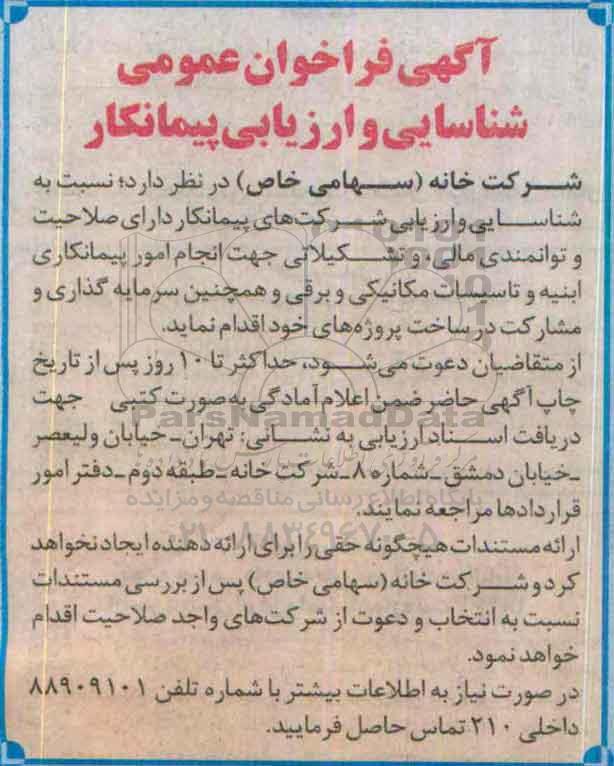 آگهی فراخوان عمومی
شناسایی و ارزیابی پیمانکار
شرکت خانه (سهامی خاص) در نظر دارد؛ نسبت به
شناسایی و ارزیابی شرکت‌های پیمانکار دارای صلاحیت
و توانمندی مالی، و تشکیلاتی جهت انجام امور پیمانکاری
ابنیه و تاسیسات مکانیکی و برقی و همچنین سرمایه گذاری و
مشارکت در ساخت پروژه‌های خود اقدام نماید.
از متقاضیان دعوت می‌شود، حداکثر تا ۱۰ روز پس از تاریخ
چاپ آگهی حاضر ضمن اعلام آمادگی به صورت کتبی جهت
دریافت اسناد ارزیابی به نشانی: تهران ـ خیابان ولیعصر
ـ خیابان دمشق ـ شماره ۸ ـ شرکت خانه ـ طبقه دوم ـ دفتر امور
قراردادها مراجعه نمایند.
ارائه مستندات هیچگونه حقی را برای ارائه دهنده ایجاد نخواهد
کرد و شرکت خانه (سهامی خاص) پس از بررسی مستندات
نسبت به انتخاب و دعوت از شرکت‌های واجد صلاحیت اقدام
خواهد نمود.
در صورت نیاز به اطلاعات بیشتر با شماره تلفن ۸۸۹۰۹۱۰۱
داخلی ۲۱۰ تماس حاصل فرمایید.
ParsNamadData
پایگاه اطلاع رسانی مناقصه و مزایده
۰۲۱-۸۸۳۴۹۶۷۰-۵